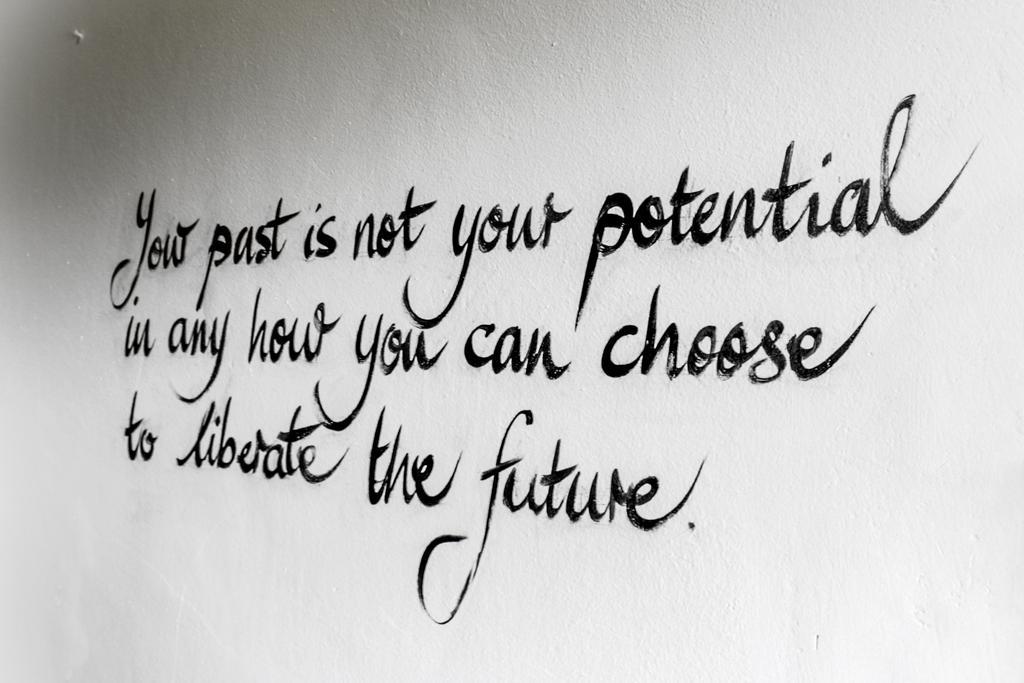 Your past is not your potential
in any how you can choose
to liberate the future.